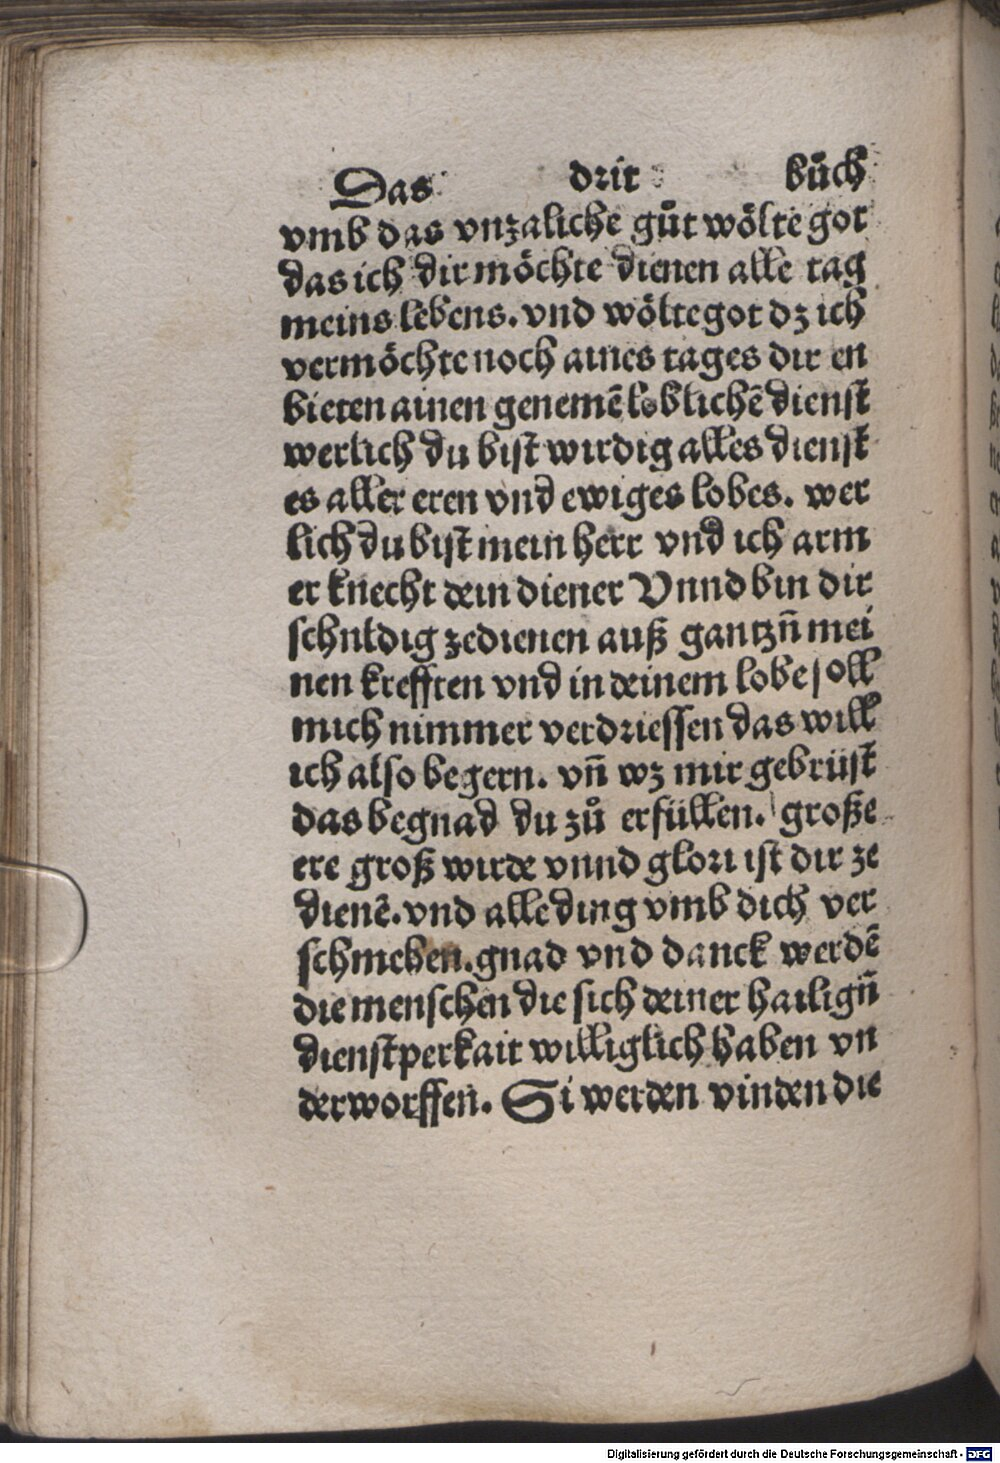 Das drit bůch
vmb das vnzaliche gůt wölte got
das ich dir möchte dienen alle tag
meins lebens. vnd wölte got dz ich
vermöchte noch aines tages dir en
bieten ainen genemē loblichē dienst
werlich du bist wirdig alles dienst
es aller eren vnd ewiges lobes. wer
lich du bist mein herr vnd ich arm
er knecht dein diener Vnnd bin dir
schuldig zedienen auß gantzn̄ mei
nen krefften vnd in deinem lobe soll
mich nimmer verdriessen das will
ich also begern. vn̄ wz mir gebrüst
das begnad du zů erfüllen. große
ere groß wirde vnnd glori ist dir ze
dienē. vnd alle ding vmb dich ver
schmehen. gnad vnd danck werdē
die menschen die sich deiner hailign̄
dienstperkait williglich haben vn
derworffen. Si werden vinden die
Digitalisierung gefördert durch die Deutsche Forschungsgemeinschaft - DFG